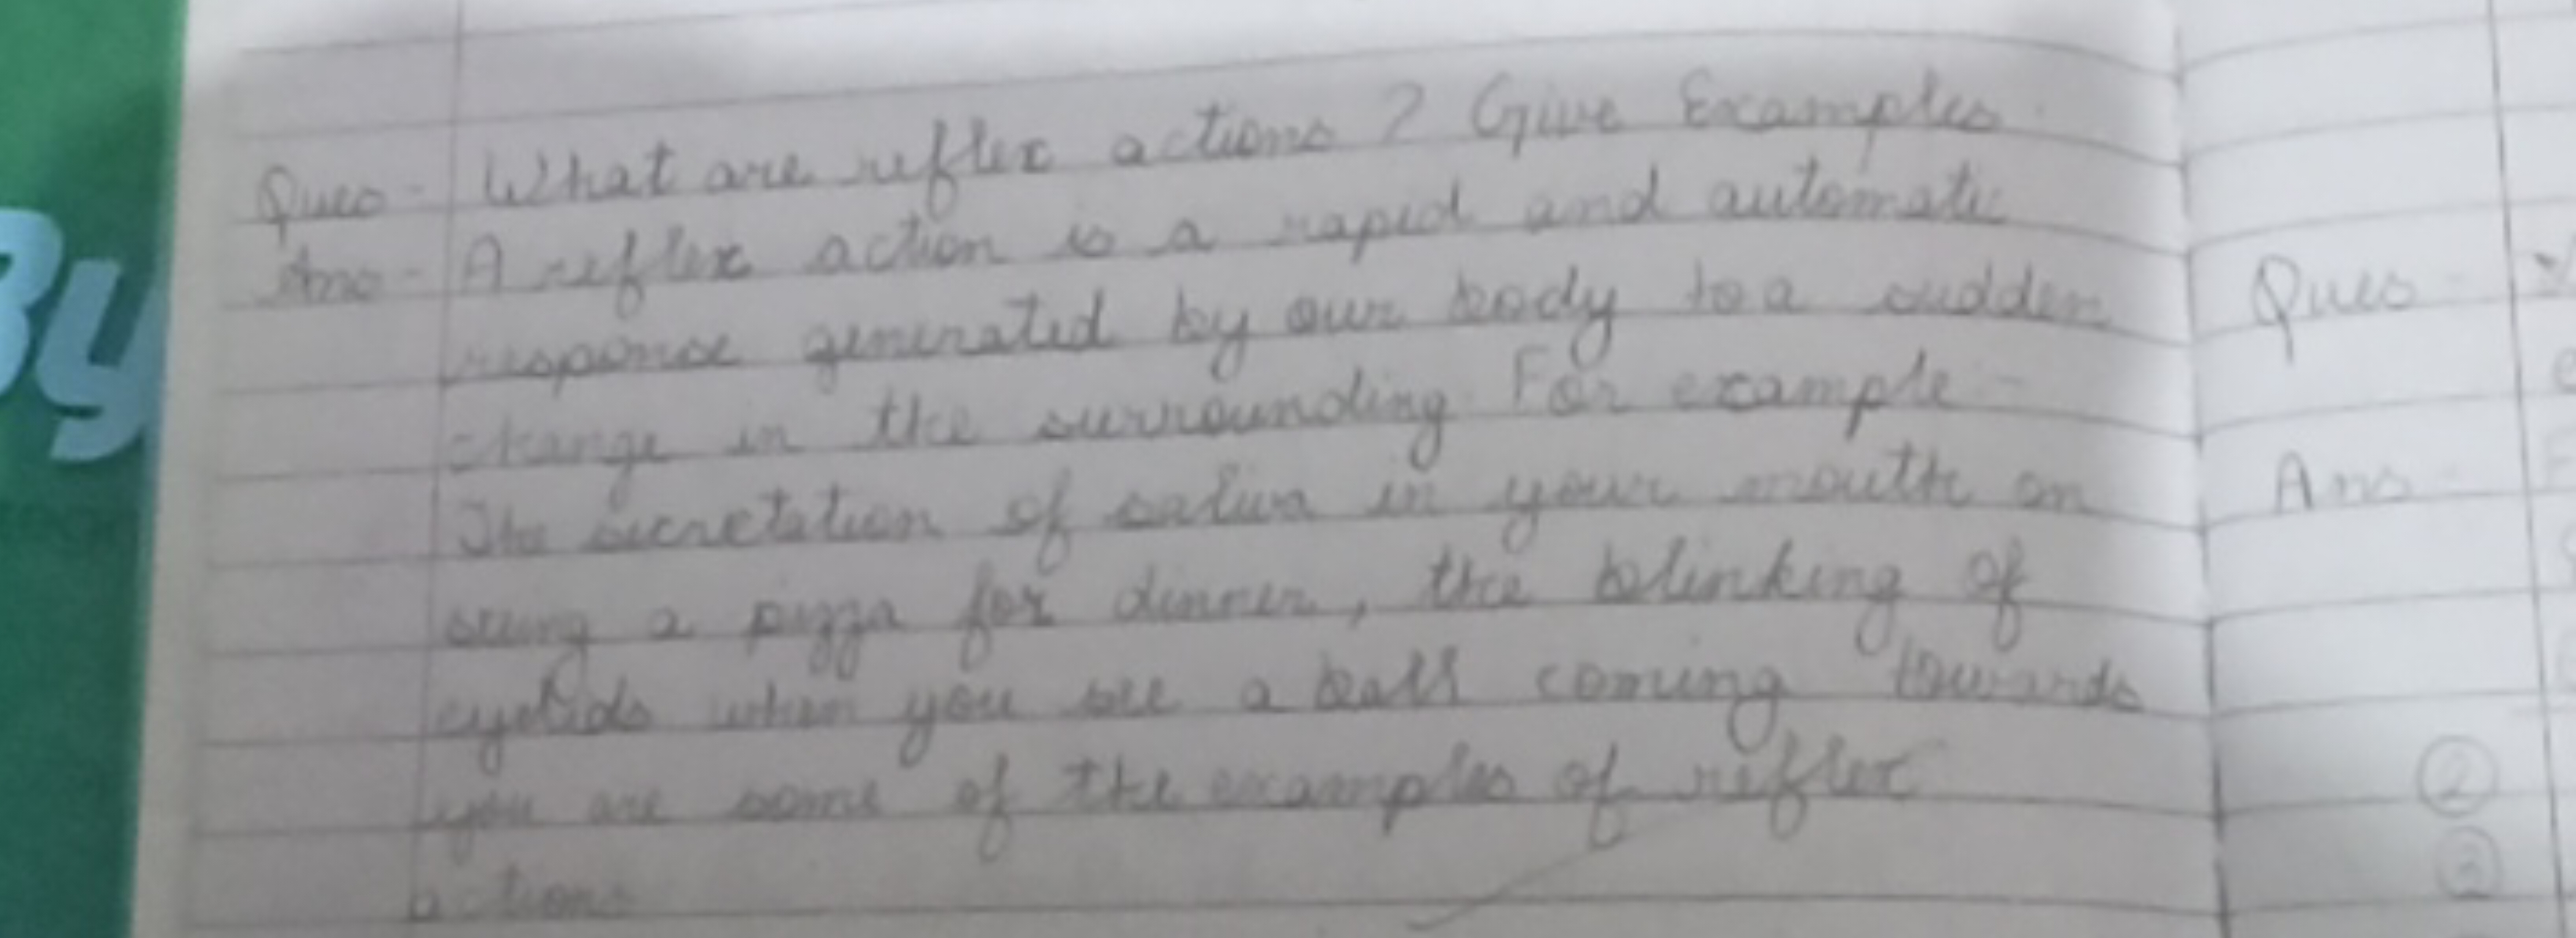 By
Ques - What are reflex actions ? Give Examples.
Ans - A reflex action is a rapid and automatic
response generated by our body to a sudden
change in the surrounding. For example -
The secretation of saliva in your mouth on
seeing a pizza for dinner, the blinking of
eyelids when you see a ball coming towards
you are some of the examples of reflex
actions
Ques -
Ans -
2
3